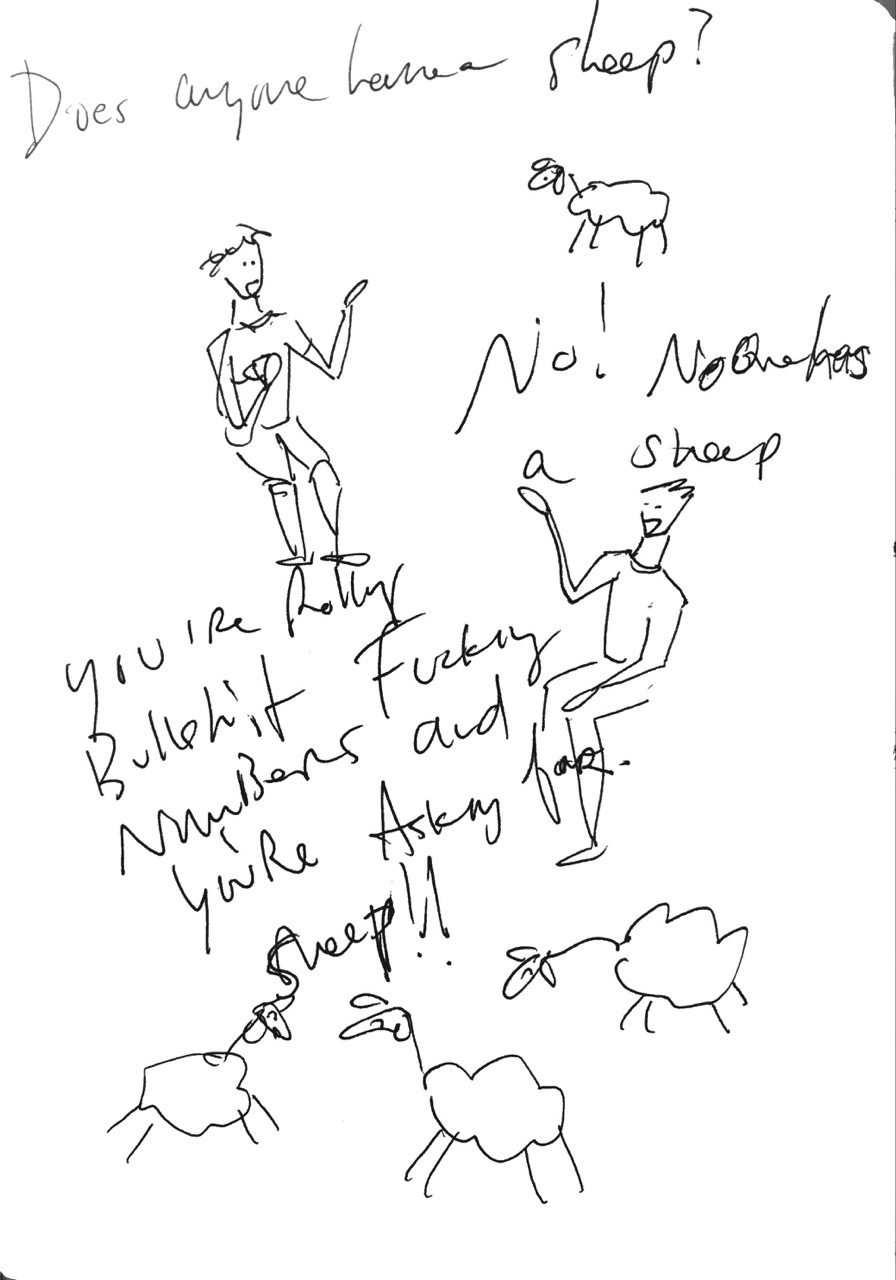 Does anyone have a sheep?
No! No One has
a sheep
You're Rolling
Bullshit Fucking
Numbers and
You're Asking for
Sheep!!